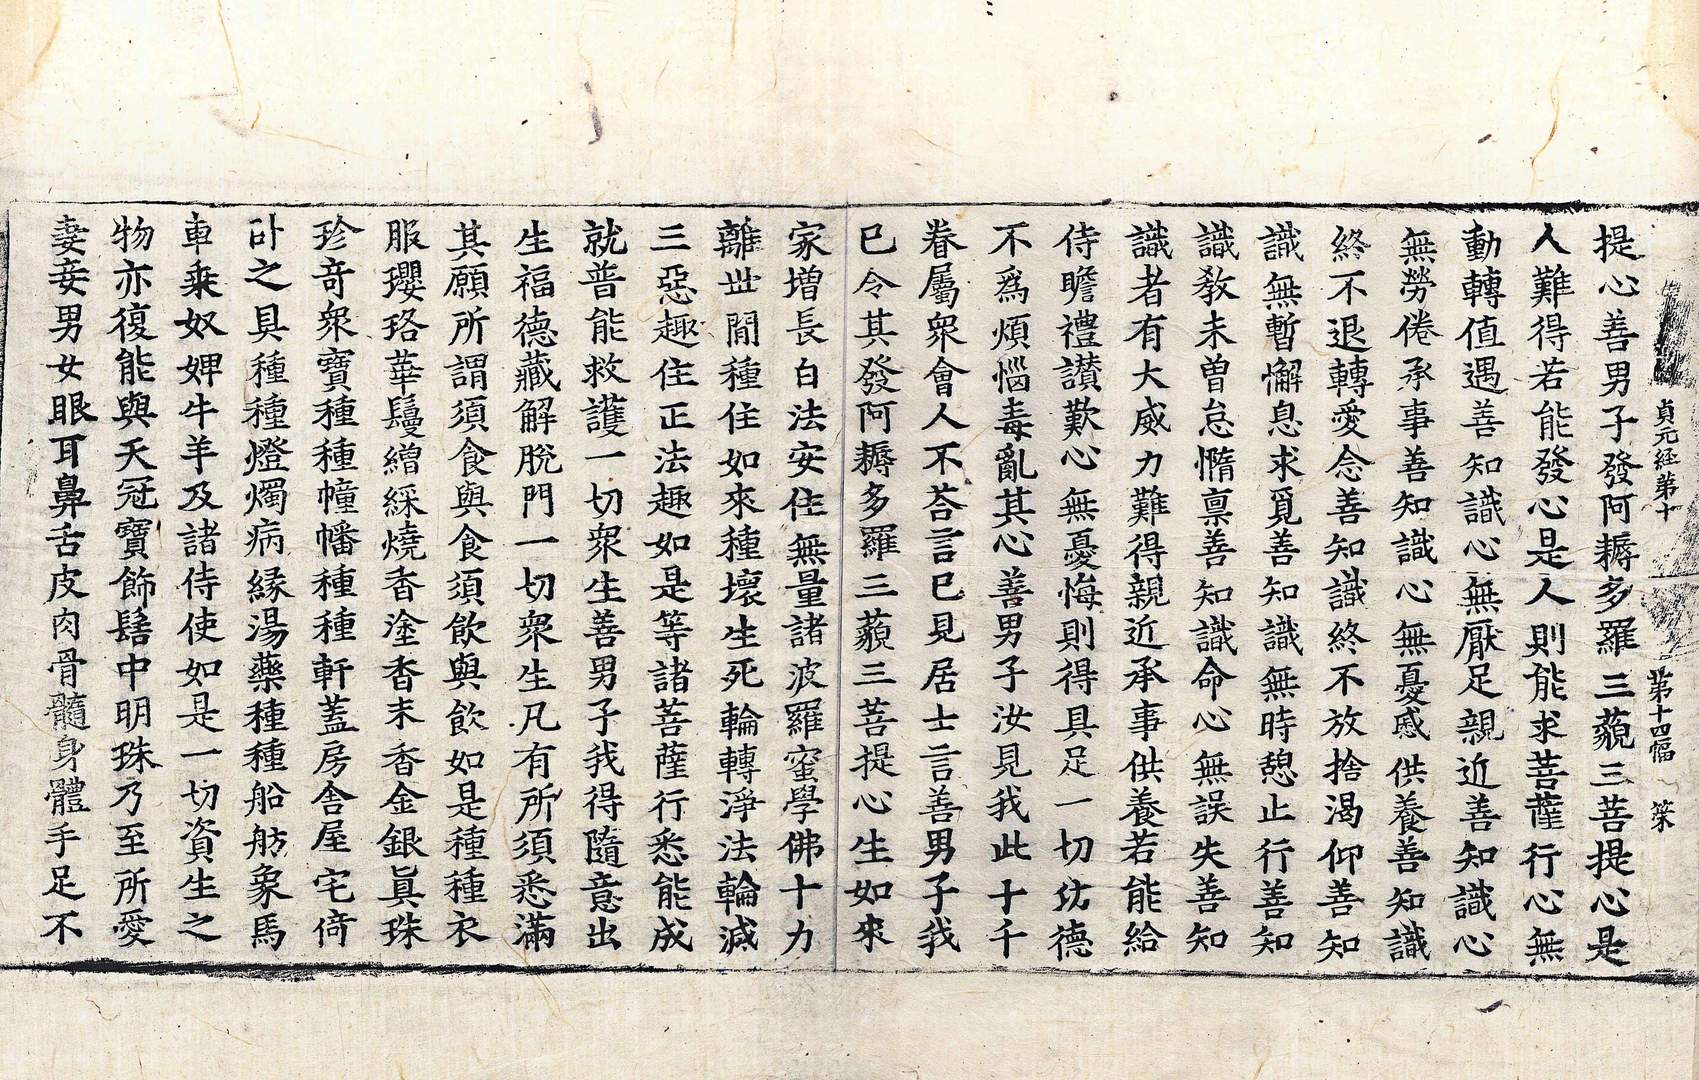 貞元経第十 第十四幅 筞
提心善男子發阿耨多羅三藐三菩提心是
人難得若能發心是人則能求菩薩行心無
動轉值遇善知識心無厭足親近善知識心
無勞倦承事善知識心無憂慼供養善知識
終不退轉愛念善知識終不放捨渴仰善知
識無暫懈息求覓善知識無時憩止行善知
識教未曽怠惰禀善知識命心無誤失善知
識者有大威力難得親近承事供養若能給
侍瞻禮讃歎心無憂悔則得具足一切㓛德
不爲煩惱毒亂其心善男子汝見我此十千
眷屬衆會人不荅言已見居士言善男子我
已令其發阿耨多羅三藐三菩提心生如來
家增長白法安住無量諸波羅蜜學佛十力
離世間種住如來種壞生死輪轉淨法輪滅
三惡趣住正法趣如是等諸菩薩行悉能成
就普能救護一切衆生善男子我得隨意出
生福德藏解脫門一切衆生凡有所須悉滿
其願所謂須食與食須飮與飮如是種種衣
服瓔珞華鬘繒綵燒香塗香末香金銀眞珠
珍奇衆寶種種幢幡種種軒蓋房舎屋宅倚
卧之具種種燈燭病緣湯藥種種船舫象馬
車乗奴婢牛羊及諸侍使如是一切資生之
物亦復能與天冠寶飾髻中明珠乃至所愛
妻妾男女眼耳鼻舌皮肉骨髓身體手足不